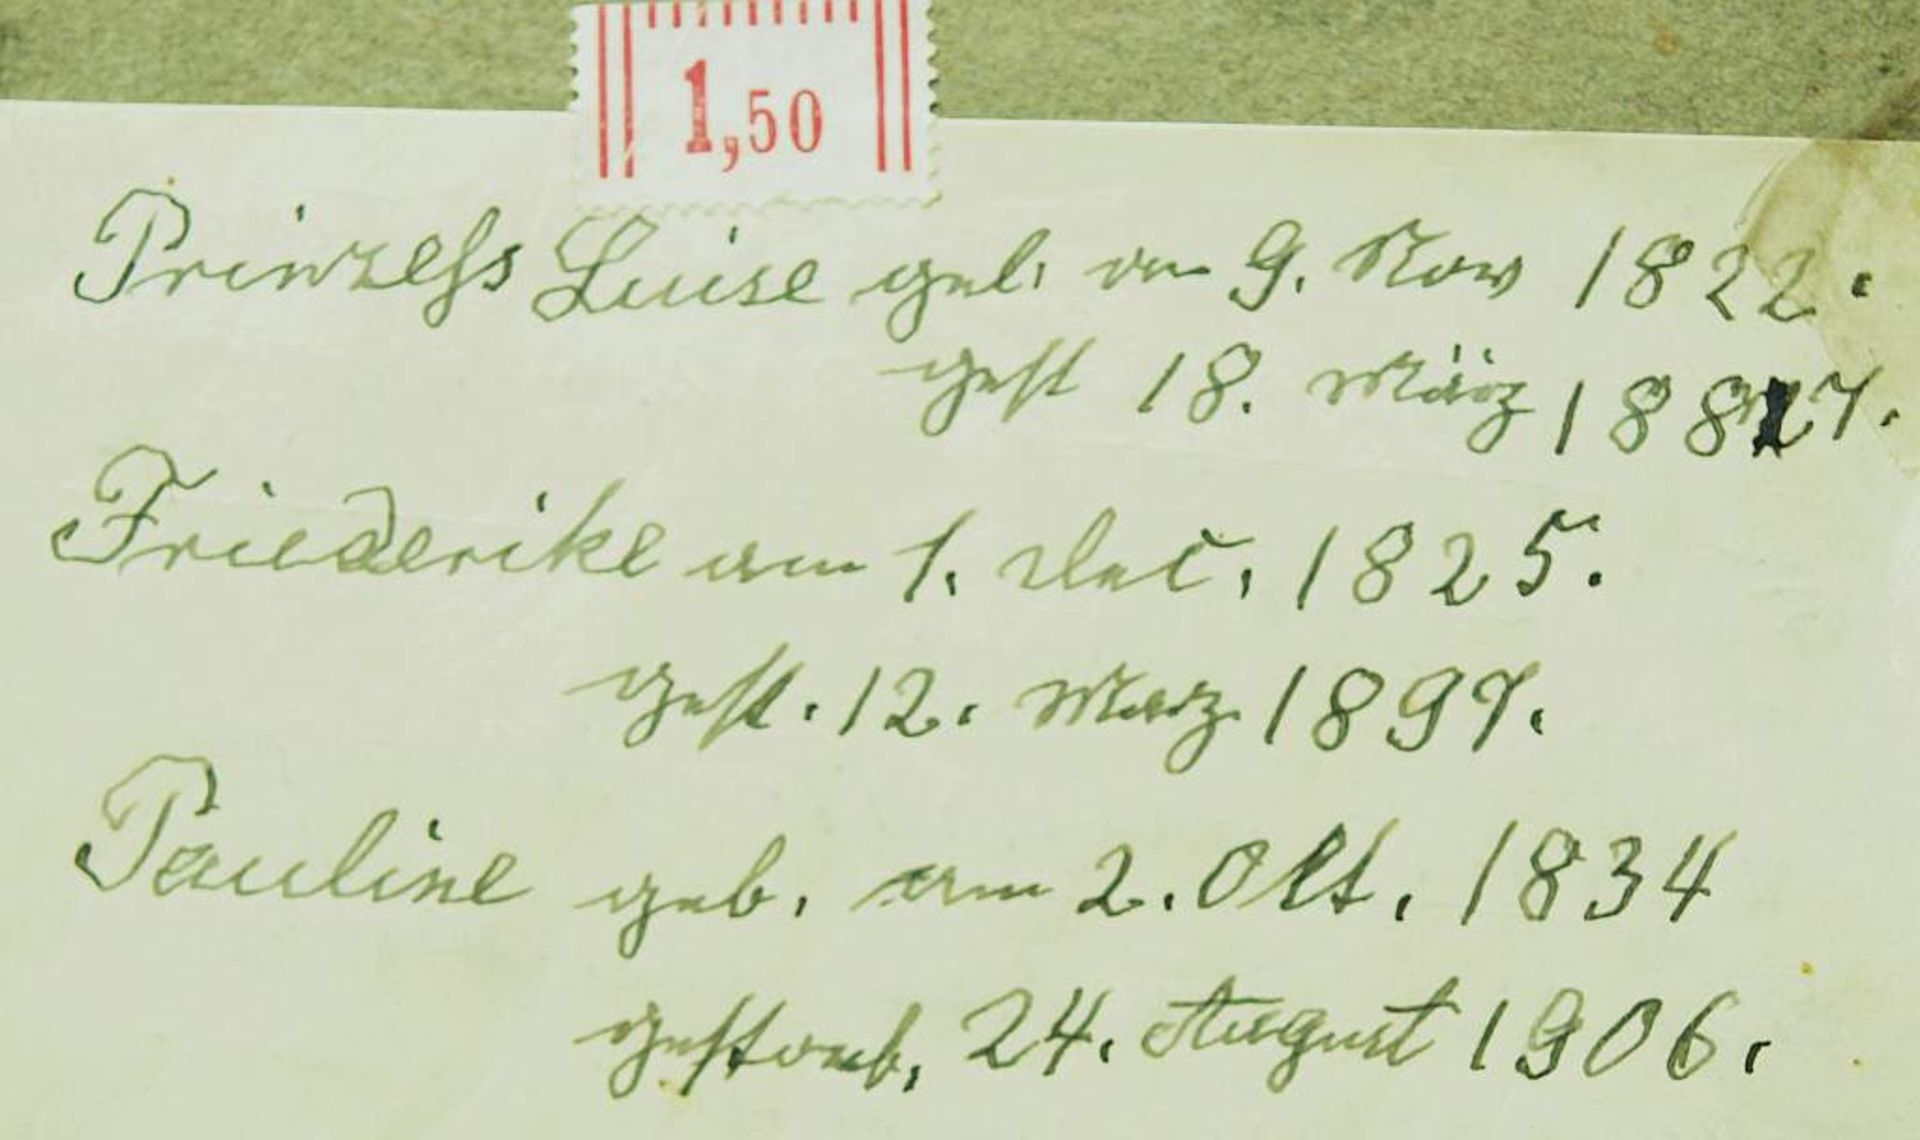 1,50
Prinzess Luise geb. am 9. Nov 1822.
gest 18. März 1887.
Friederike am 1. Dec. 1825.
gest. 12. März 1897.
Pauline geb. am 2. Okt. 1834
gestorb. 24. August 1906.